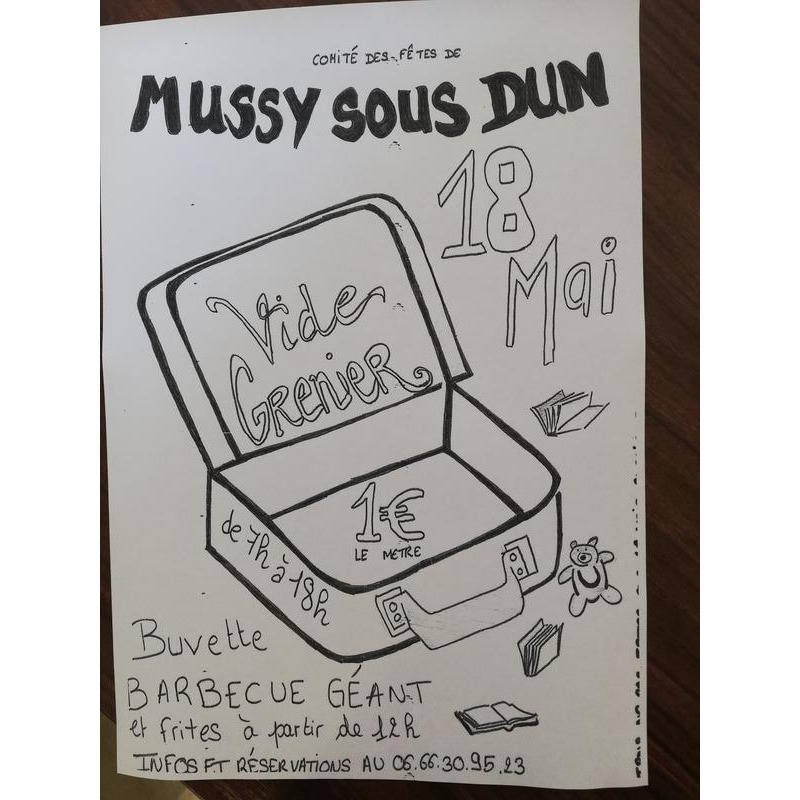 COMITÉ DES FÊTES DE
MUSSY SOUS DUN
18
Mai
Vide
GRENIER
1€
LE METRE
de 7h à 18h
Buvette
BARBECUE GÉANT
et frites à partir de 12h
INFOS ET RÉSERVATIONS AU 06.66.30.95.23